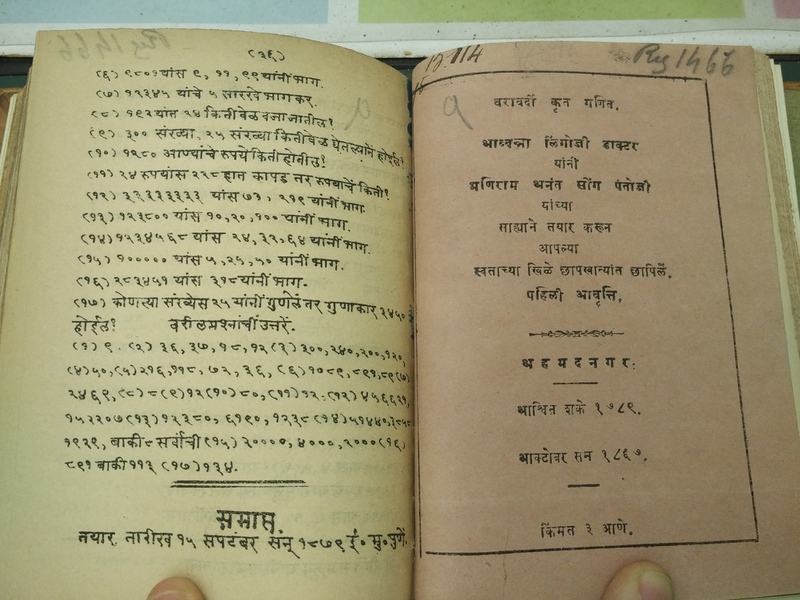 (३६)
(६) ९८०१ यांस ९, ११, ९९ यांनीं भाग.
(७) १२३४५ यांचे ५ सारखे भाग कर.
(८) १९२ यांत २४ कितीवेळ वजा जातील?
(९) ३०० संख्या, २५ संख्या कितीवेळ घेतल्यानें होईल?
(१०) १२८० आण्यांचे रुपये किती होतील?
(११) २४ रुपयांस २२८ हात कापड तर रुपयाचें किती?
(१२) ३३३३३३३ यांस ७३, २१९ यांनीं भाग.
(१३) १२३८०० यांस १०, २०, १०० यांनीं भाग.
(१४) १२३४५६८ यांस २४, ३२, ६४ यांनीं भाग.
(१५) १००००० यांस ५, २५, ५० यांनीं भाग.
(१६) २८३४५१ यांस ३१८ यांनीं भाग.
(१७) कोणत्या संख्येस २५ यांनीं गुणलें तर गुणाकार ३३५०
होईल? वरील प्रश्नांचीं उत्तरें.
(१) ९. (२) ३६, ३७, १८, १२ (३) ३००, २४०, २००, १२०,
(४) ५०, (५) २१६, ११८, ७२, ३६, (६) १०८९, ८९१, ९९ (७)
२४६९, (८) ८ (९) १२ (१०) ८०, (११) १२, (१२) ४५६६२१,
१५२२०७ (१३) १२३८०, ६१९०, १२३८ (१४) ५१४४०,
१९२९, बाकी ८ सर्वांची (१५) २००००, ४०००, २००० (१६)
८९१ बाकी ११३ (१७) १३४.
समाप्त.
तयार. तारीख १५ सपटंबर सन् १८७९ ई॰ मु॰ पुणें.
Reg 1466
वरावर्दी कृत गणित.
आय्यन्ना लिंगोजी डाक्टर
यांनीं
मणिराम अनंत सोंग पंतोजी
यांच्या
साह्याने तयार करून
आपल्या
स्वताच्या खिळे छापखान्यांत छापिलें.
पहिली आवृत्ति.
अहमदनगर:
आश्विन शके १७८९.
आक्टोबर सन १८६७.
किंमत ३ आणे.